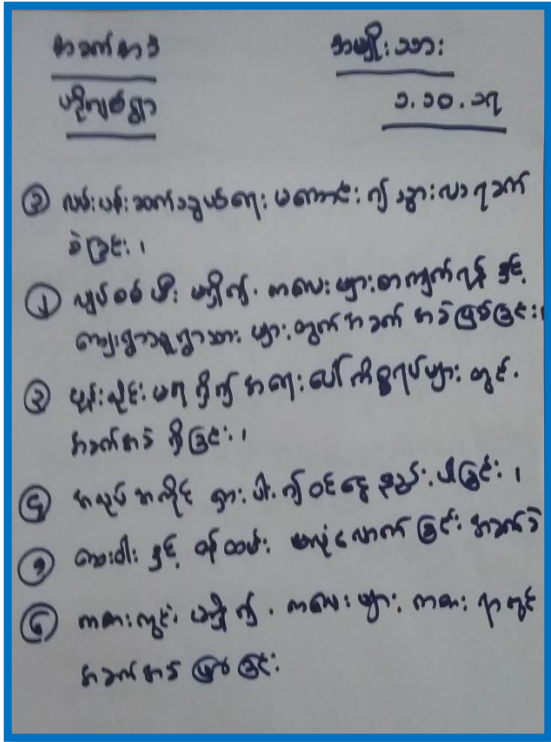 အခက်အခဲ
အမျိုးသား
ပဒိုလျှစ်ရွာ
၁.၁၀.၁၇
၁ လမ်းပန်းဆက်သွယ်ရေး မကောင်း၍ သွားလာရခက်
ခဲခြင်း၊
၂ လျှပ်စစ် မီး မရှိ၍ ကလေးများစာကျက်ရန် နှင့်
ကျေးရွာသူရွာသား များ တွက် အခက် အခဲဖြစ်ခြင်း၊
၃ ဖုန်းလိုင်း မရ ရှိ၍ အရေးပေါ်ကိစ္စရပ်များ တွင်
အခက်အခဲ ရှိခြင်း၊
၄ အလုပ် အကိုင် ရှားပါး၍ ဝင်ငွေ နည်းပါးခြင်း၊
၅ ဆေးဝါး နှင့် ဝန်ထမ်း မလုံလောက် ခြင်း အခက်ခဲ
၆ ကစားကွင်း မရှိ၍ ကလေးများ ကစား ရာတွင်
အခက်အခဲ ဖြစ်ခြင်း